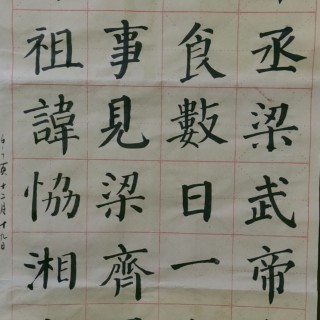 丞梁武帝
食數日一
事見梁齊
祖諱恊湘
十二月十九日